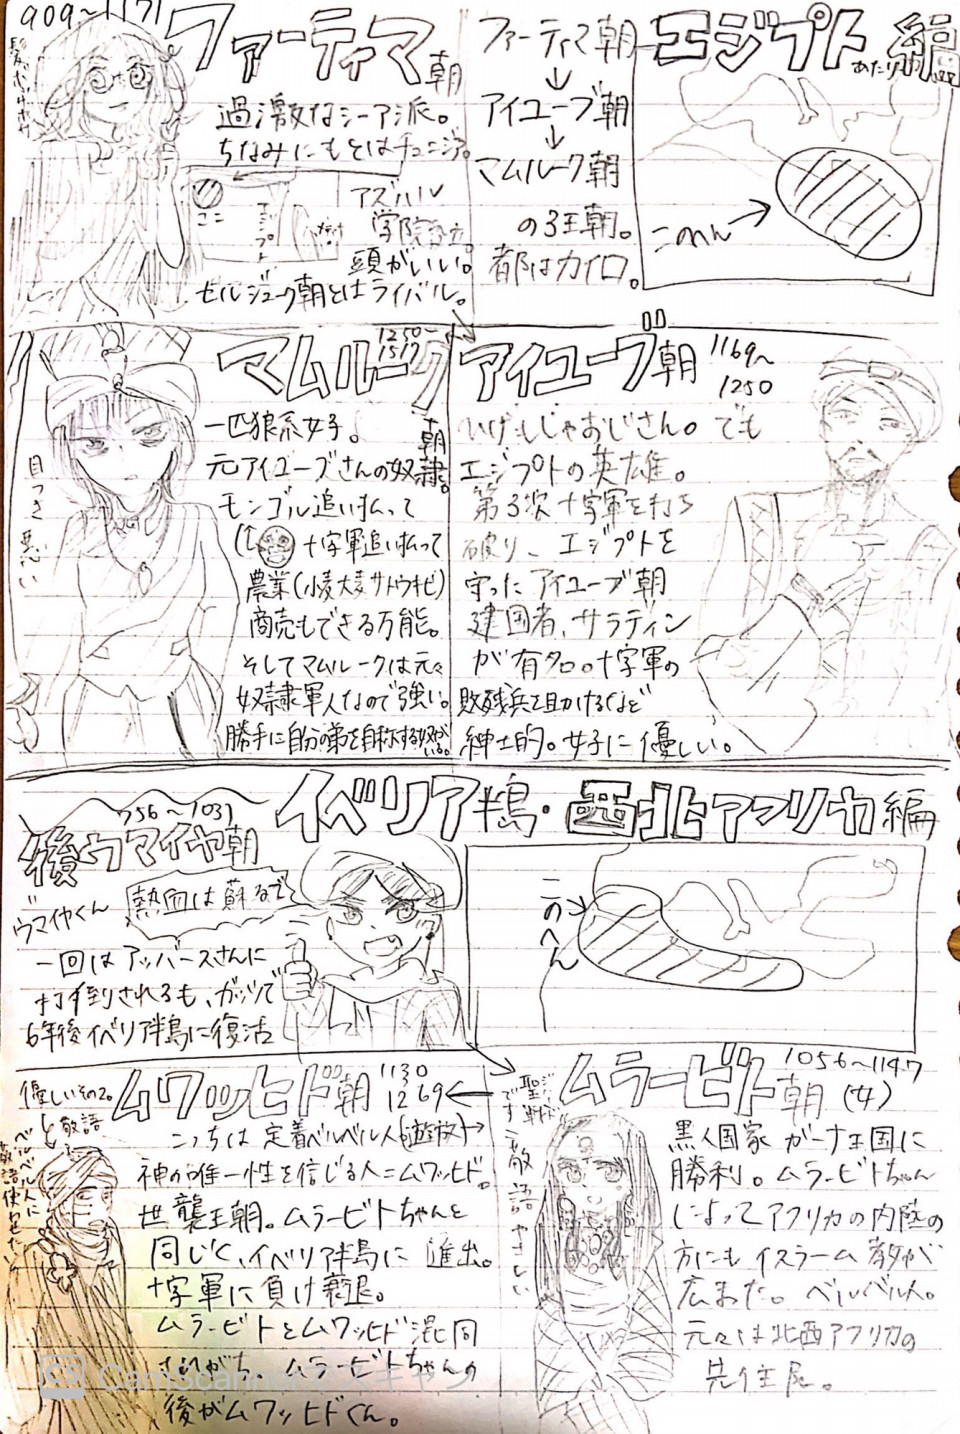 エジプトあたり編
ファーティマ朝
↓
アイユーブ朝
↓
マムルーク朝
の3王朝。
都はカイロ。
このへん→
909〜1171
ファーティマ朝
過激なシーア派。
ちなみにもとはチュニジア。
ここ
エジプト
アズハル
学院設立。
頭がいい。
セルジューク朝とはライバル。
アイユーブ朝
1169〜
1250
ひげもじゃおじさん。でも
エジプトの英雄。
第3次十字軍を打ち
破り、エジプトを
守ったアイユーブ朝
建国者、サラディン
が有名。十字軍の
敗残兵を助けるなど
紳士的。女子に優しい。
マムルーク朝
1250〜
1517
目つき悪い
一匹狼系女子。
元アイユーブさんの奴隷。
モンゴル追い払って
十字軍追い払って
農業(小麦大麦サトウキビ)
商売もできる万能。
そしてマムルークは元々
奴隷軍人なので強い。
勝手に自分の弟を自称する奴がいる。
イベリア半島・西北アフリカ編
このへん
756〜1031
後ウマイヤ朝
熱血は蘇るぜ
ウマイヤくん
一回はアッバースさんに
打倒されるも、ガッツで
6年後イベリア半島に復活
ムラービト朝(女)
1056〜1147
聖戦
ジハード
です
敬語
やさしい
黒人国家ガーナ王国に
勝利。ムラービトちゃん
によってアフリカの内陸の
方にもイスラーム教が
広まった。ベルベル人。
元々は北西アフリカの
先住民。
ムワッヒド朝
1130
1269
優しいその2。
敬語
ベルベル人に
敬語使わせたい
こっちは定着ベルベル人(遊牧→
神の唯一性を信じる人=ムワッヒド。
世襲王朝。ムラービトちゃんと
同じく、イベリア半島に進出。
十字軍に負け衰退。
ムラービトとムワッヒド混同
されがち。ムラービトちゃんの
後がムワッヒドくん。
CS CamScannerでスキャン